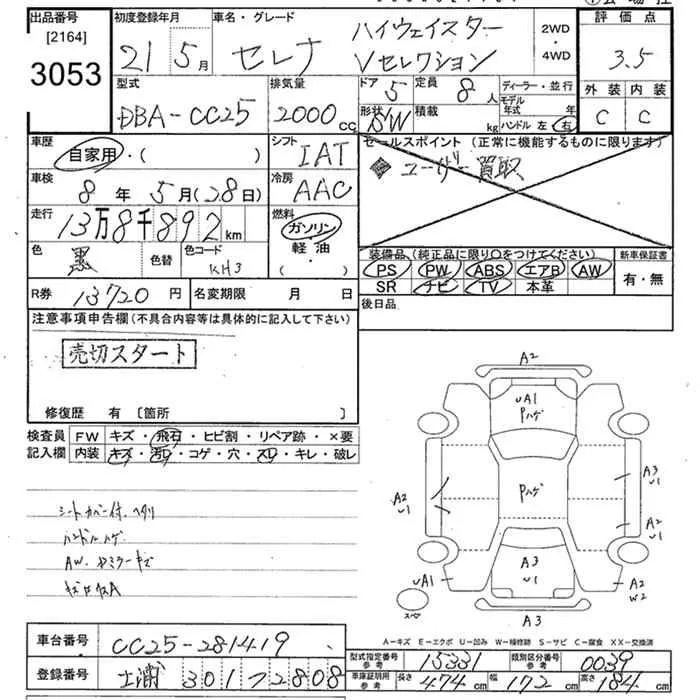 出品番号 初度登録年月 車名・グレード 評価点
[2164] 21年5月 セレナ ハイウェイスター Vセレクション 2WD・4WD 3.5
3053
型式 排気量 ドア 5 定員 8人 ディーラー・並行 外装 内装
DBA-CC25 2000cc 形状 SW 積載 kg モデル年式 年 C C
ハンドル 左 右
車歴 自家用・( ) シフト IAT セールスポイント (正常に機能するものに限ります)
ユーザー買取
車検 8年5月(28日) 冷房 AAC
走行 13万8千892km 燃料 ガソリン・軽油・( )
色 黒 色替 色コード KH3
装備品 (純正品に限り○をつけてください) 新車保証書
PS PW ABS エアB AW 有・無
SR ナビ TV 本革
R券 13720円 名変期限 月 日 後日品
注意事項申告欄(不具合内容等は具体的に記入して下さい)
売切スタート
修復歴 有 〔箇所 〕
検査員記入欄 FW キズ・飛石・ヒビ割・リペア跡・×要
内装 キズ・汚れ・コゲ・穴・スレ・キレ・破レ
シートカバー付、ヘタリ
ハンドルハゲ
AW・ドアミラーキズ
A2
UA1
Pハゲ
A3
U1
Pハゲ
A2
U1
A2
U1
A3
U1
UA1
A2
W2
スペア
A3
A-キズ E-エクボ U-凹み W-補修跡 S-サビ C-腐食 XX-交換済
車台番号 CC25-281419
型式指定番号 参考 15331 類別区分番号 参考 0039
登録番号 土浦 301 72808
車庫証明用 参考 長さ 474cm 幅 172cm 高さ 184cm